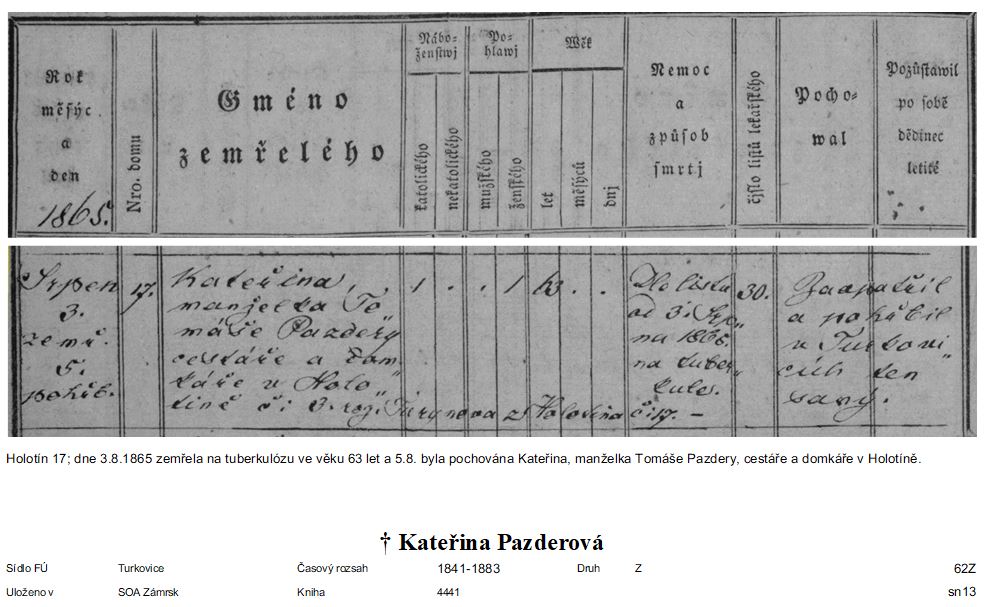 Rok
měsýc
a
den
1865.
Nro. domu
Gméno
zemřelého
Nábo-
ženstwj
katolického
nekatolického
Po-
hlawj
mužského
ženského
Wěk
let
měsýců
dnj
Nemoc
a
způsob
smrtj
čjslo listů lekařského
Pocho-
wal
Pozůstawil
po sobě
dědinec
letité
Srpen
3.
zemř.
5.
pohřb.
17.
Kateřina,
manželka To„
máše Pazdery
cestáře a dom„
káře v Holo„
tině či 3. roz. Turynova z Holotina č: 17. –
1 . . 1 63 . .
od 3. Srp„
na 1865
na tuber„
kule.
30.
Zaopatřil
a pohřbil
v Turkovi„
cích ten
samý.
Holotín 17; dne 3.8.1865 zemřela na tuberkulózu ve věku 63 let a 5.8. byla pochována Kateřina, manželka Tomáše Pazdery, cestáře a domkáře v Holotíně.
† Kateřina Pazderová
Sídlo FÚ Turkovice Časový rozsah 1841-1883 Druh Z 62Z
Uloženo v SOA Zámrsk Kniha 4441 sn13